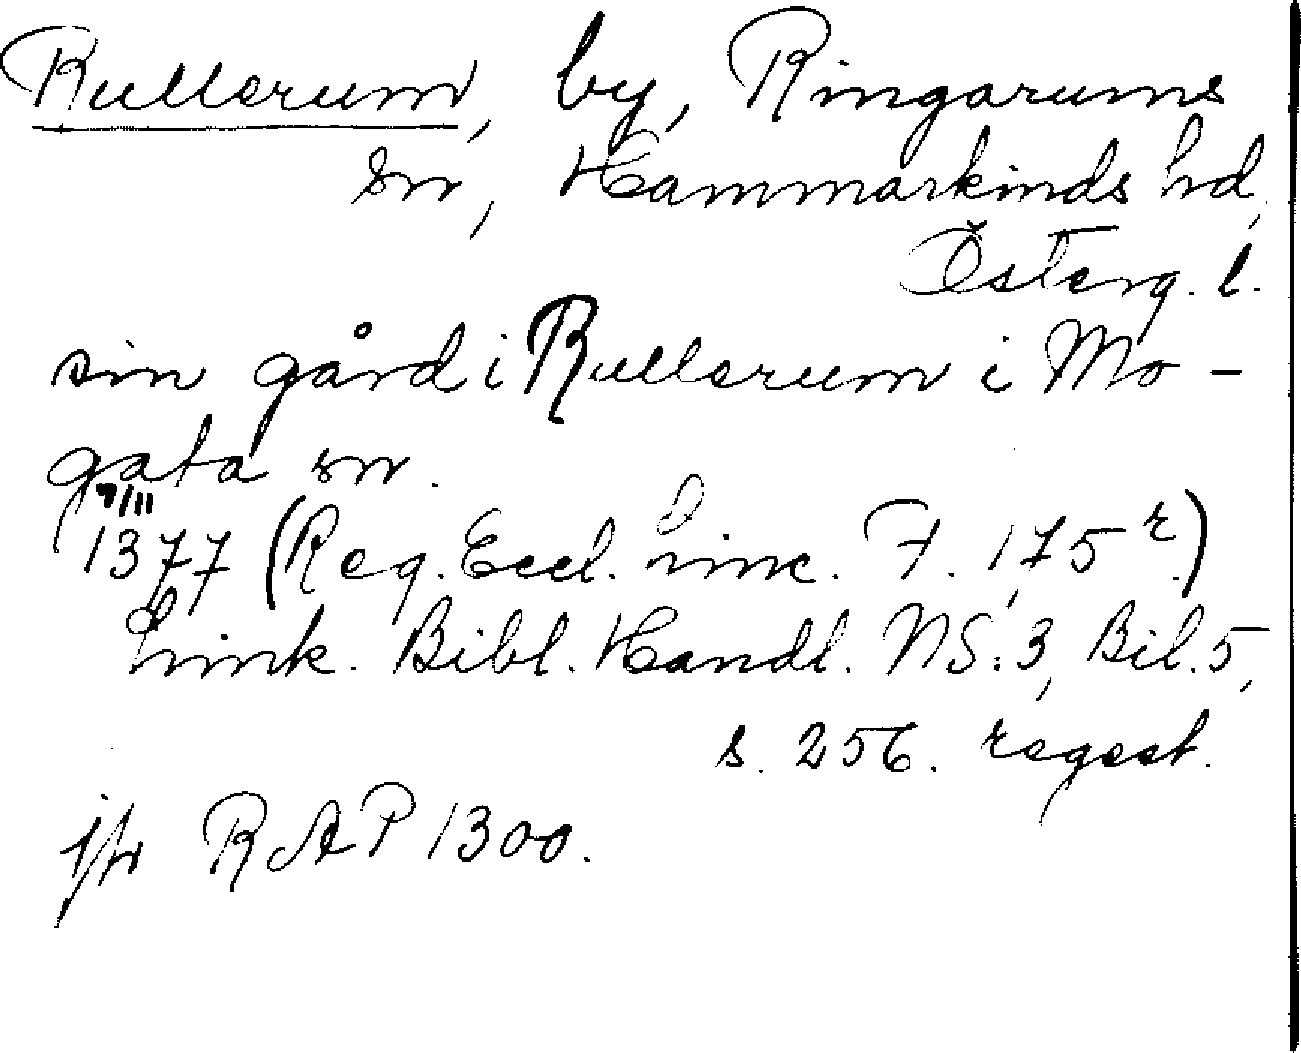 Rullerum, by, Ringarums
sn, Hammarkinds hd,
Österg. l.
sin gård i Rullerum i Mo-
gata sn.
9/11
1377 (Reg. Eccl. Linc. F. 175 r.)
Link. Bibl. Handl. NS:3, Bil. 5,
s. 256. regest.
jfr RAP 1300.